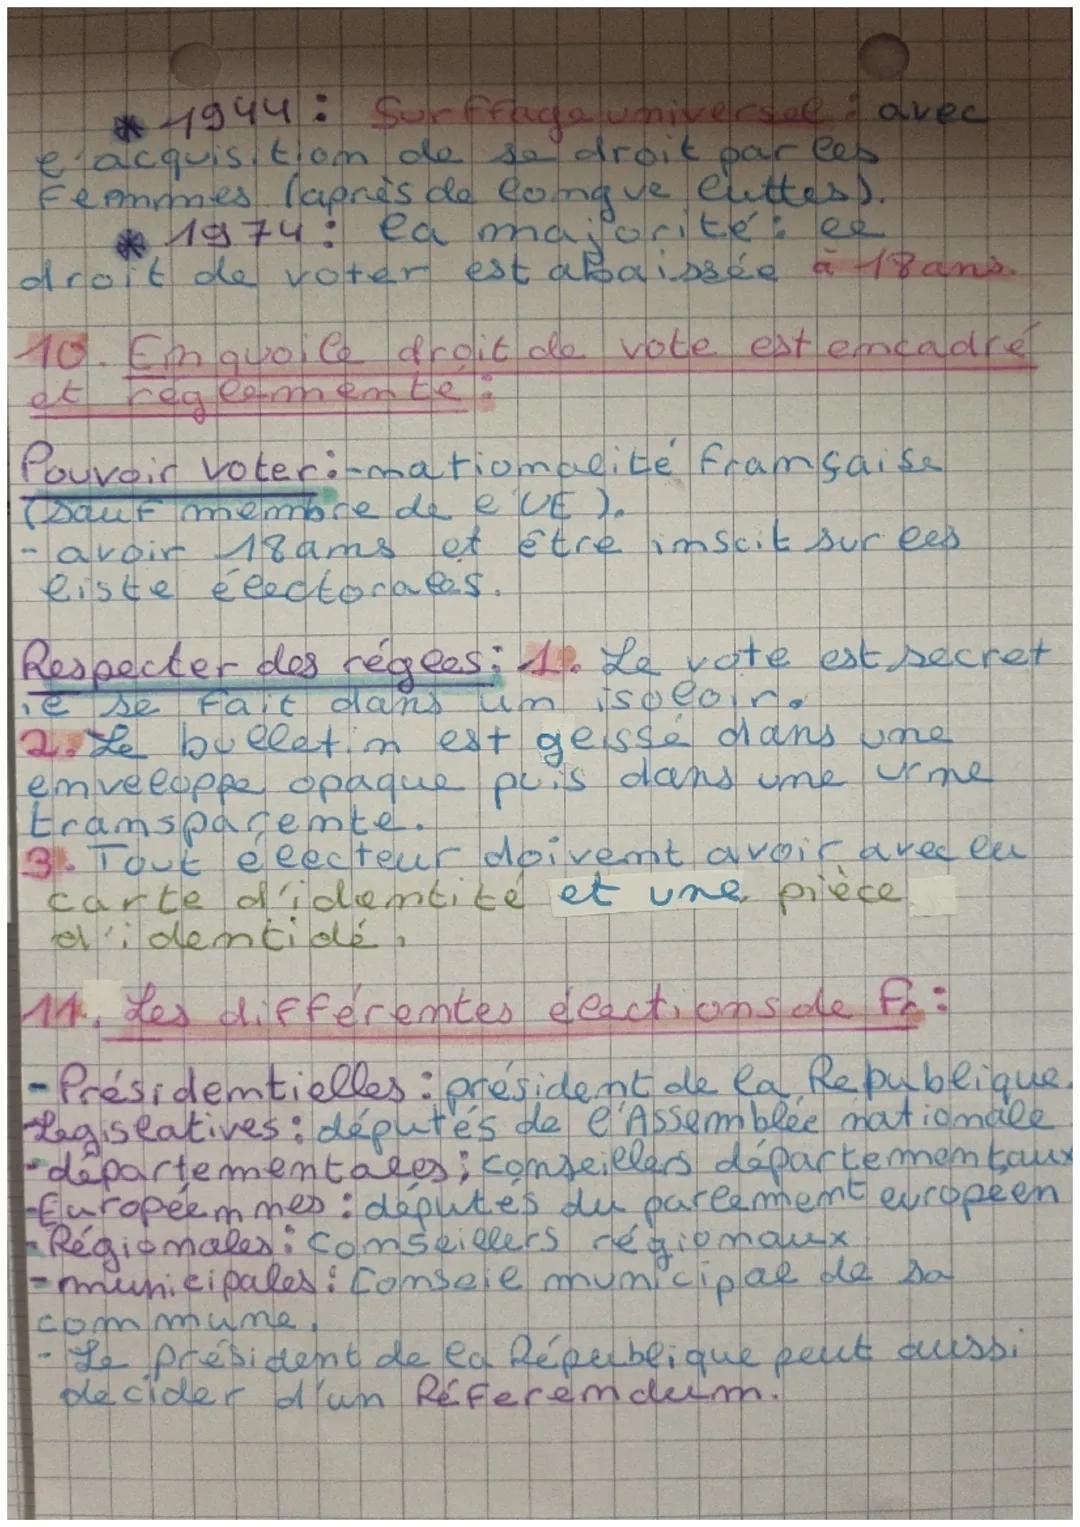 * 1944 : Surffage universel : avec
l'acquisition de se droit par les
Femmes (aprés de longue luttes).
* 1974 : la majorité : le
droit de voter est abaissée à 18 ans.
10. En quoi le droit de vote est encadré
et réglemente :
Pouvoir voter : - nationalité Française
(sauf membre de l'UE).
- avoir 18 ans et être inscit sur les
liste électorales.
Respecter des régles : 1. Le vote est secret
il se fait dans un isoloir.
2. Le bulletin est glissé dans une
enveloppe opaque puis dans une urne
transparente.
3. Tout électeur doivent avoir avec lu
carte d'identité et une pièce
d'identidé.
11. Les différentes élections de Fr :
- Présidentielles : président de la Republique.
- Legislatives : députés de l'Assemblée nationale
- départementales ; conseillers départementaux
- Européennes : députés du parlement européen
- Régionales : conseillers régionaux
- municipales : Conseil municipal de sa
commune.
- Le président de la République peut aussi
decider d'un Référendum.